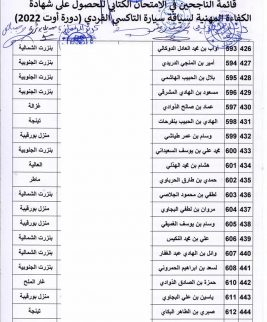 قائمة الناجحين في الإمتحان الكتابي للحصول على شهادة
الكفاءة المهنية لسياقة سيارة التاكسي الفردي (دورة أوت 2022)
426 593 أواب بن محمد العادل الدوكالي بنزرت الشمالية
427 594 أمير بن المنجي الدريدي بنزرت الجنوبية
428 595 بلال بن الحبيب الهاشمي بنزرت الجنوبية
429 596 مسعود بن الهادي المشرقي بنزرت الجنوبية
430 597 عماد بن صالح الذوادي غزالة
431 598 محمد بن الحبيب بنفرحات تينجة
432 599 وسام بن عمر طياشي منزل بورقيبة
433 600 محمد علي بن يوسف السعيداني بنزرت الجنوبية
434 601 هشام بن محمد الهذلي العالية
435 602 حمدي بن طارق الحرباوي ماطر
436 603 لطفي بن محمود الجلاصي بنزرت الشمالية
437 604 مروان بن لطفي البجاوي منزل بورقيبة
438 605 وسام بن يوسف القصيفي منزل بورقيبة
439 606 علي بن محمد النكيس منزل بورقيبة
440 607 وائل بن الهادي عبد الغفار بنزرت الشمالية
441 608 أسعد بن ابراهيم الحمروني بنزرت الجنوبية
442 610 حمزة بن الصادق الذوادي غار الملح
443 611 ياسين بن علي البجاوي منزل بورقيبة
444 612 صبري بن الطاهر البكاي تينجة